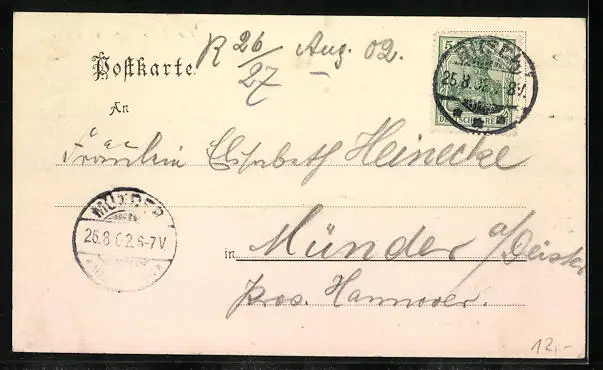 R 26/27 Aug. 02.
Postkarte
5
25.8.02 8V.
DEUTSCHES REICH
An
Fräulein Elisabeth Heinecke
MÜNDER
26.8.02.6-7V
in Münder a/Deister
Prov. Hannover.
12,-